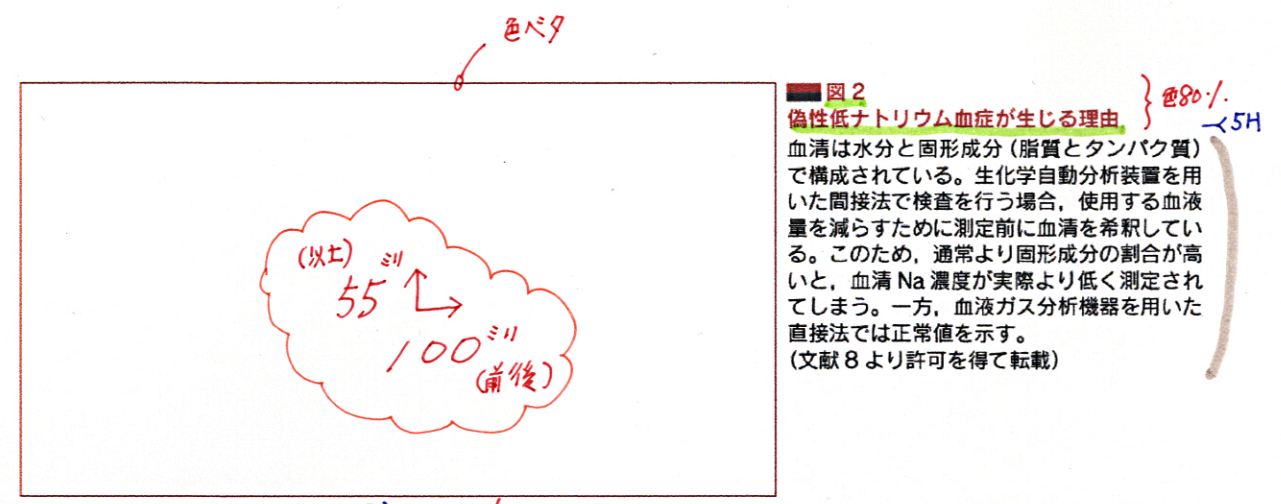 色ベタ
(以上)
55ミリ
100ミリ
(前後)
図2
偽性低ナトリウム血症が生じる理由
色80%
5H
血清は水分と固形成分(脂質とタンパク質)
で構成されている。生化学自動分析装置を用
いた間接法で検査を行う場合,使用する血液
量を減らすために測定前に血清を希釈してい
る。このため,通常より固形成分の割合が高
いと,血清Na濃度が実際より低く測定され
てしまう。一方,血液ガス分析機器を用いた
直接法では正常値を示す。
(文献8より許可を得て転載)